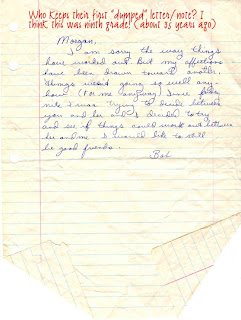 Who keeps their first "dumped" letter/note? I
think this was ninth grade! (about 35 years ago)
Morgan,
I am sorry the way things
have worked out. But my affections
have been drawn toward another.
Things weren't going so well any-
how. (For me anyway) Since
nite I was trying to decide between
you and her and I decided to try
and see if things could work out between
her and me. I would like to still
be good friends.
Bob